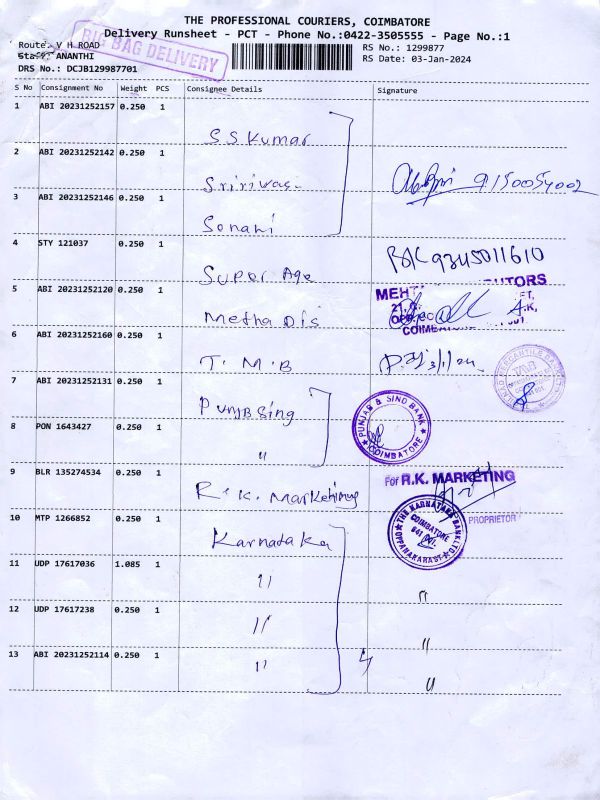 THE PROFESSIONAL COURIERS, COIMBATORE
Delivery Runsheet - PCT - Phone No.:0422-3505555 - Page No.:1
BIG BAG DELIVERY
Route: V H ROAD
Staff: ANANTHI
DRS No.: DCJB129987701
RS No.: 1299877
RS Date: 03-Jan-2024
S No Consignment No Weight PCS Consignee Details Signature
1 ABI 20231252157 0.250 1 S S Kumar
2 ABI 20231252142 0.250 1 Sririvas 9150054002
3 ABI 20231252146 0.250 1 Sonani
4 STY 121037 0.250 1 Super Age 9345011610
5 ABI 20231252120 0.250 1 Metha Dis
6 ABI 20231252160 0.250 1 T. M. B 3/1/24
7 ABI 20231252131 0.250 1 PunjB Sing
PUNJAB & SIND BANK
COIMBATORE
8 PON 1643427 0.250 1 "
9 BLR 135274534 0.250 1 R. K. Marketing
For R.K. MARKETING
PROPRIETOR
10 MTP 1266852 0.250 1 Karnataka
THE KARNATAKA BANK LTD.
COIMBATORE
11 UDP 17617036 1.085 1 " "
12 UDP 17617238 0.250 1 " "
13 ABI 20231252114 0.250 1 " "